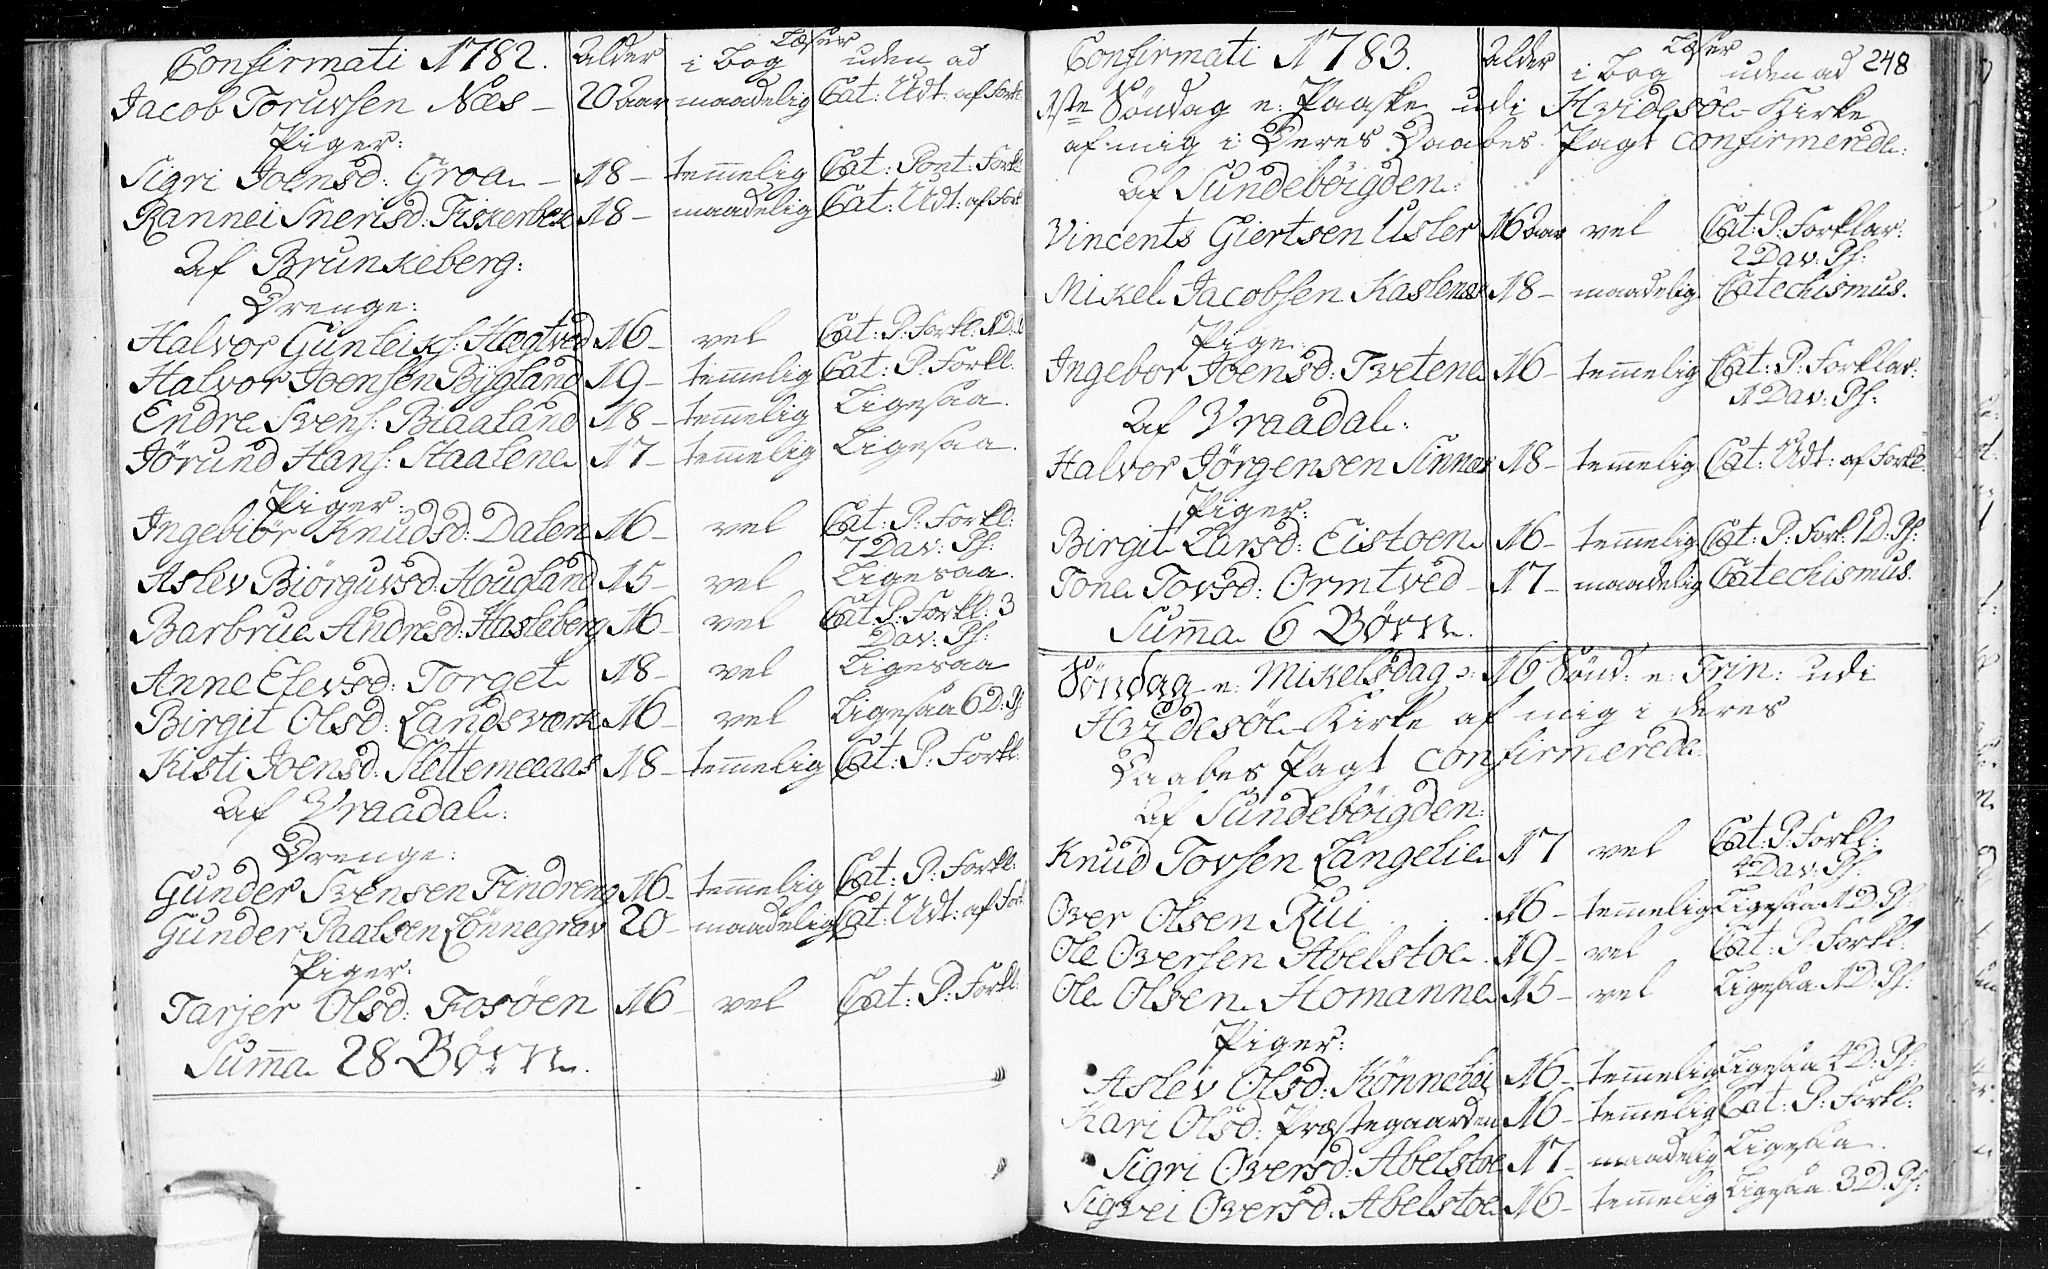 Confirmati 1782. Alder Læser
i Bog uden ad
Jacob Toruvsen Næs – 20 aar maadelig Cat: Udt: af Forkl:
Piger:
Sigri Joensd: Groa – 18 – temmelig Cat: Pont: Forkl:
Rannei Snerisd: Fiskerbek 18 – maadelig Cat: Udt: af Fork
Af Brunkeberg:
Drenge:
Halvor Gunleiks: Hegtved 16 – vel Cat: P: Forkl: 1 D:
Halvor Joensen Bÿgland 19 – temmelig Cat: P: Forkl.
Endre Svens: Biaaland 18 – temmelig Ligesaa.
Jørund Hans: Staalene 17 – temmelig Ligesaa.
Piger:
Ingebiør Knudsd: Dalen 16 – vel Cat: P: Forkl:
7 Dav: Ps:
Aslev Biörguvsd: Hougland 15 – vel Ligesaa.
Barbrue Andresd: Hasleberg 16 – vel Cat: P: Forkl: 3
Dav: Ps:
Anne Elevsd: Torget 18 – vel Ligesaa
Birgit Olsd: Landsværk 16 – vel Ligesaa 6 D: Ps
Kisti Joensd: Slettemeeaas 18 – temmelig Cat: P: Forkl:
Af Vraadal:
Drenge:
Gunder Svensen Findreng 16 – temmelig Cat: P: Forkl:
Gunder Paalsen Lönnegrav 20 – maadelig Cat: Udt: af Fork
Piger:
Tarjer Olsd: Fosöen 16 – vel Cat: P: Forkl:
Summa 28 Børn.
Confirmati 1783. Alder Læser
i Bog uden ad 248
1ste Söndag e: Paaske udi Hvidesöe Kirke
af mig i Deres Daabes Pagt confirmerede:
Af Sundebøigden:
Vincents Giertsen Usler 16 aar vel Cat: P: Forklar:
2 Dav: Ps:
Mikel Jacobsen Kaslenæs 18 – maadelig Catechismus.
Pige:
Ingebor Joensd: Tvetene 16 – temmelig Cat: P: Forklar:
1 Dav: Ps:
Af Vraadal:
Halvor Jörgensen Sinnæs 18 – temmelig Cat: Udt: af Forkl
Piger:
Birgit Larsd: Eistoen 16 – temmelig Cat: P: Fork: 1 D: Ps:
Tone Tovsd: Ormtved – 17 – maadelig Catechismus.
Summa 6 Børn.
Söndag e: Mikelsdag ɔ: 16 Sönd: e: Trin: udi
Hvidesöe Kirke af mig i deres
Daabes Pagt confirmerede:
Af Sundebøigden:
Knud Tovsen Langelie 17 vel Cat: P: Forkl:
4 Dav: Ps:
Over Olsen Rui . . . 16 – temmelig Ligesaa 1 D: Ps:
Ole Oversen Abelstoe 19 – vel Cat: P: Forkl:
Ole Olsen Homanne 15 – vel Ligesaa 1 D: Ps:
Piger:
Aslev Olsd: 16 – temmelig Ligesaa 4 D: Ps:
Kari Olsd: Præstegaarden 16 – temmelig Cat: P: Forkl:
Sigri Oversd: Abelstoe 17 – maadelig Ligesaa.
Sigvei Oversd: Abelstoe 16 – temmelig Ligesaa 3 D: Ps: